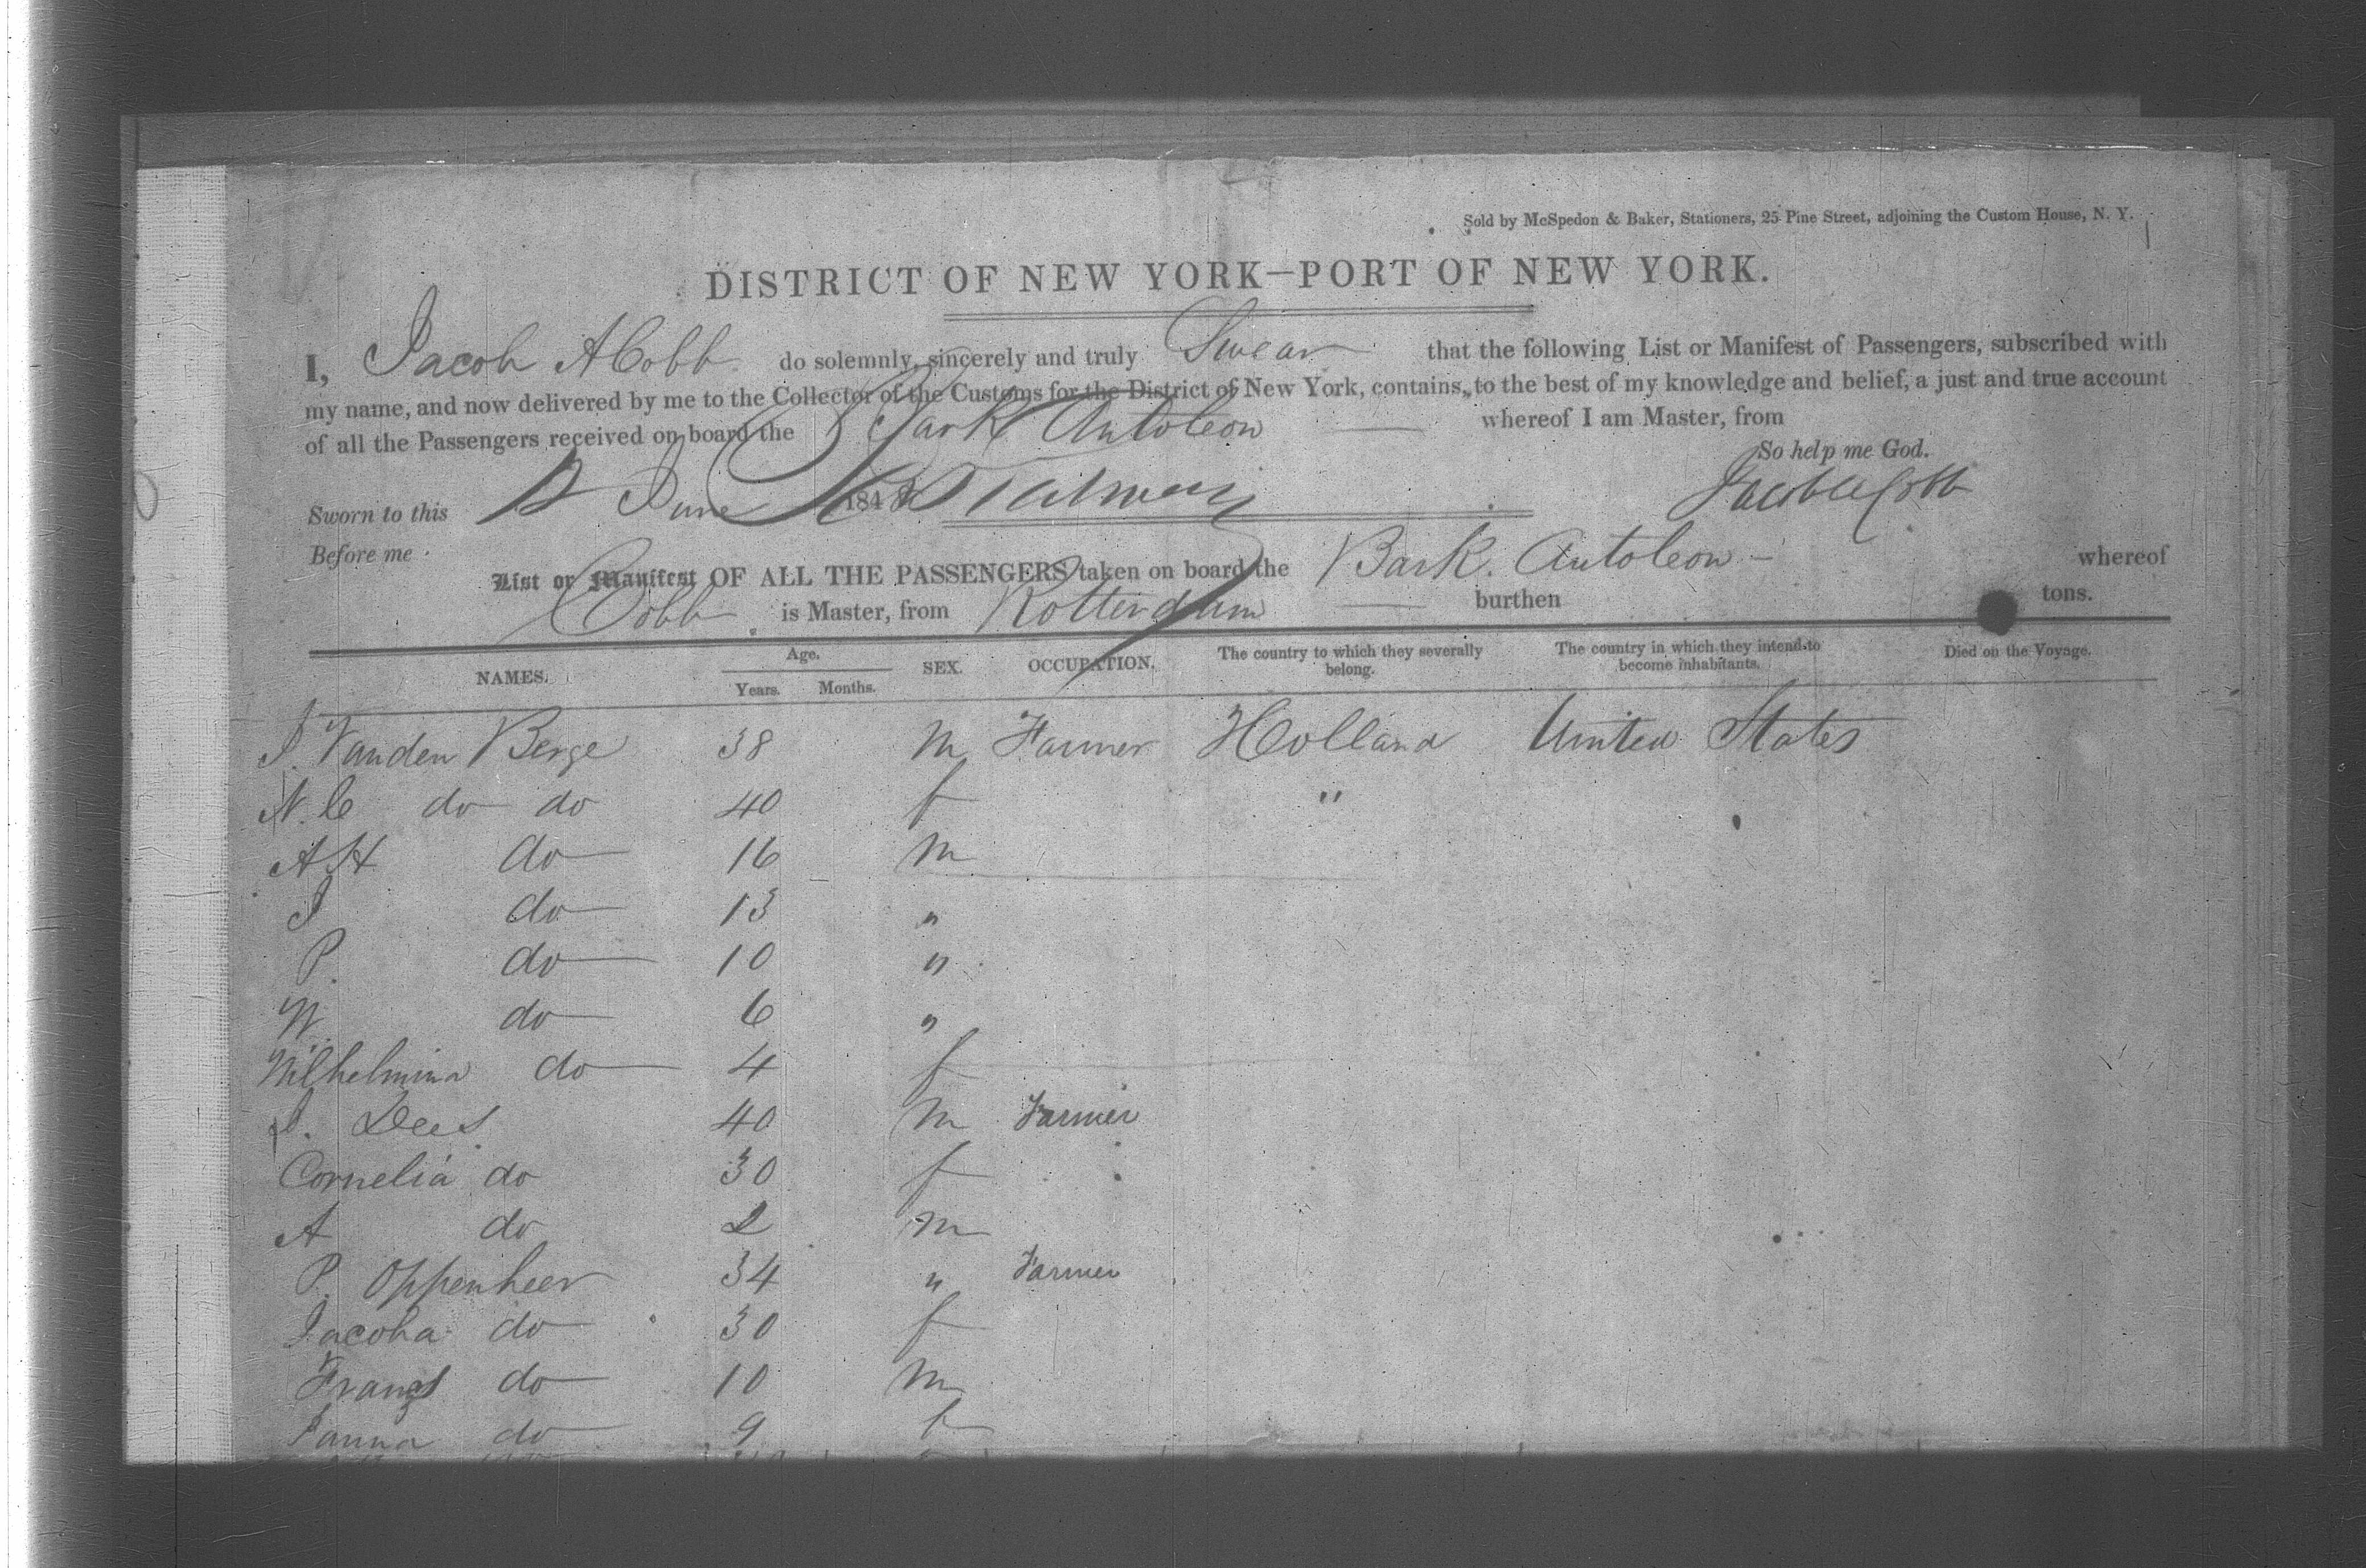 Sold by McSpedon & Baker, Stationers, 25 Pine Street, adjoining the Custom House, N. Y.
DISTRICT OF NEW YORK—PORT OF NEW YORK.
I, Jacob A Cobb do solemnly, sincerely and truly Swear that the following List or Manifest of Passengers, subscribed with
my name, and now delivered by me to the Collector of the Customs for the District of New York, contains, to the best of my knowledge and belief, a just and true account
of all the Passengers received on board the Bark Antoleon whereof I am Master, from
So help me God.
Sworn to this 12 June 1848 Jacob A Cobb
Before me
List or Manifest OF ALL THE PASSENGERS taken on board the Bark. Antoleon — whereof
Cobb is Master, from Rotterdam burthen tons.
NAMES. Age. Years. Months. SEX. OCCUPATION. The country to which they severally belong. The country in which they intend to become inhabitants. Died on the Voyage.
J. Vanden Berge 38 M Farmer Holland United States
N. C do do 40 f "
A H do 16 M
J do 13 "
P. do 10 "
W. do 6 "
Wilhelmina do 4 f
J. Dees 40 M Farmer
Cornelia do 30 f
A do 2 M
P. Oppenheer 34 " Farmer
Jacoba do 30 f
do 10 M
Janna do 9 f